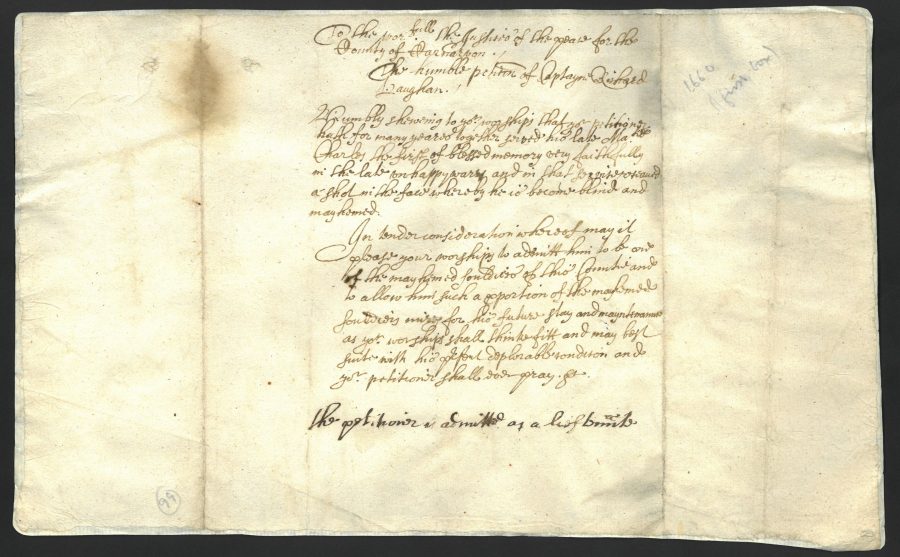 To the wor.full the Justices of the peace for the
County of Carnarvon.
The humble petition of Captayn Richard
Vaughan.
1660
(misc box)
Humbly shewing to yor. worships that yor petitioner
hath for many yeares together served his late Matie
Charles the first of blessed memory very faithfully
in the late unhappy warrs, and in that service received
a shot in the face whereby he is become blinde and
mayhemed.
In tender consideration whereof may it
please your worships to admitt him to be one
of the mayhmed souldiers of this Countie and
to allow him such a portion of the mayhemed
souldiers mizes for his future stay and mayntenance
as yor. worships shall thinke fitt and may best
suite with his present deplorable condicon and
yor. petitioner shall ever pray. &c.
the petitioner is admitted as a
99